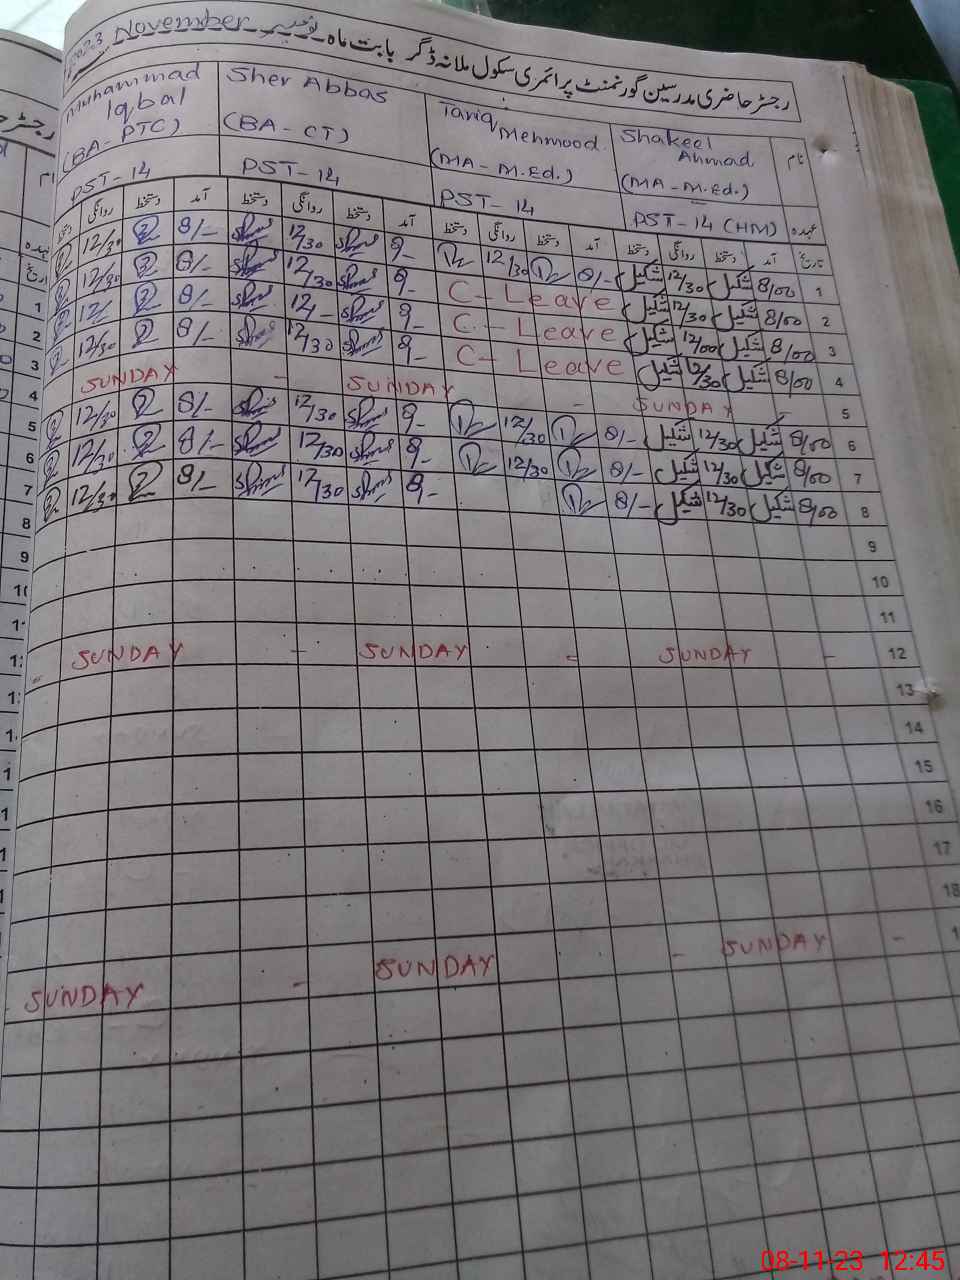 رجسٹر حاضری مدرسین گورنمنٹ پرائمری سکول ملانہ ڈگر بابت ماہ نومبر November 2023
نام Shakeel Ahmad (MA - M.Ed.) Tariq Mehmood (MA - M.Ed.) Sher Abbas (BA - CT) Muhammad Iqbal (BA - PTC)
عہدہ PST - 14 (HM) PST - 14 PST - 14 PST - 14
تاریخ آمد دستخط روانگی دستخط آمد دستخط روانگی دستخط آمد دستخط روانگی دستخط آمد دستخط روانگی دستخط
1 8/00 شکیل 12/30 شکیل 8/- 12/30 8- 12/30 8/- 12/30
2 8/00 شکیل 12/30 شکیل C - Leave 8- 12/30 8/- 12/30
3 8/00 شکیل 12/00 شکیل C - Leave 8- 12- 8/- 12/-
4 8/00 شکیل 12/30 شکیل C - Leave 8- 12/30 8/- 12/30
5 SUNDAY - SUNDAY - SUNDAY -
6 8/00 شکیل 12/30 شکیل 8/- 12/30 8- 12/30 8/- 12/30
7 8/00 شکیل 12/30 شکیل 8/- 12/30 8- 12/30 8/- 12/30
8 8/00 شکیل 12/30 شکیل 8/- 8- 12/30 8/- 12/30
9
10
11
12 SUNDAY - SUNDAY - SUNDAY -
13
14
15
16
17
18
SUNDAY - SUNDAY - SUNDAY -
08-11-23 12:45